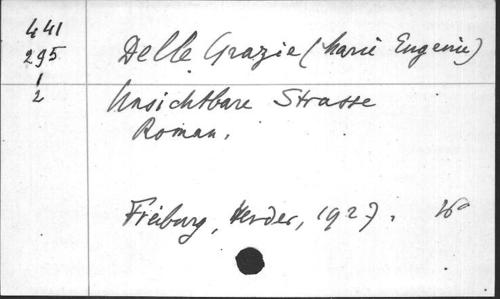 441
295
1
2
Delle Grazie (Marie Eugenie)
Unsichtbare Strasse
Roman.
Freiburg, Herder, 1927. 16º